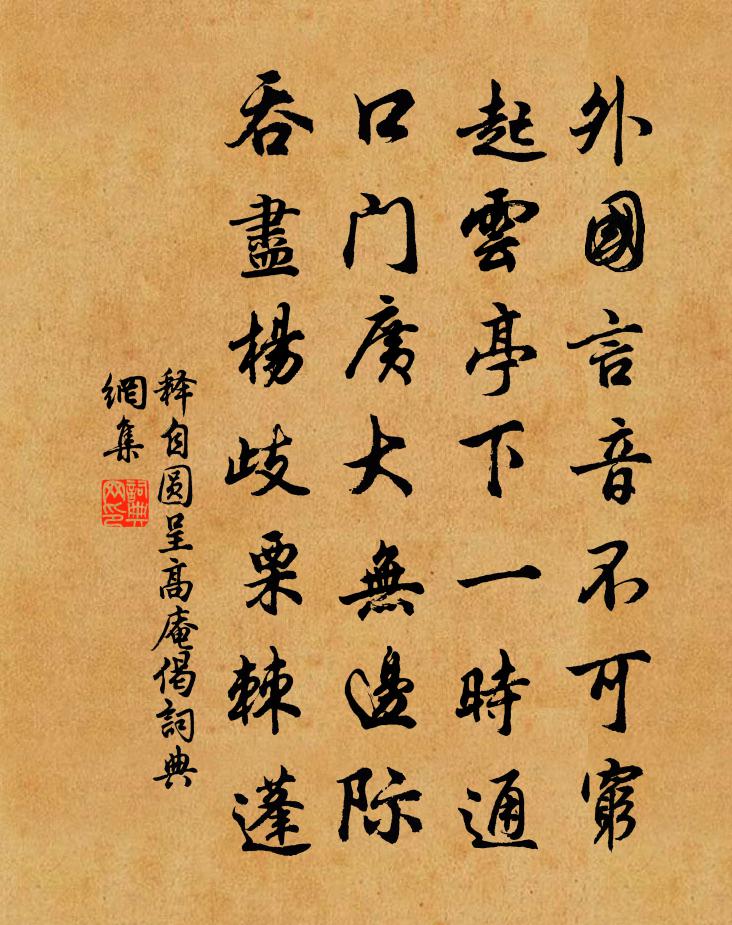 外國言音不可窮
起雲亭下一時通
口門廣大無邊際
吞盡楊歧栗棘蓬
释自圆呈高庵偈詞典
網集
詞典
網印